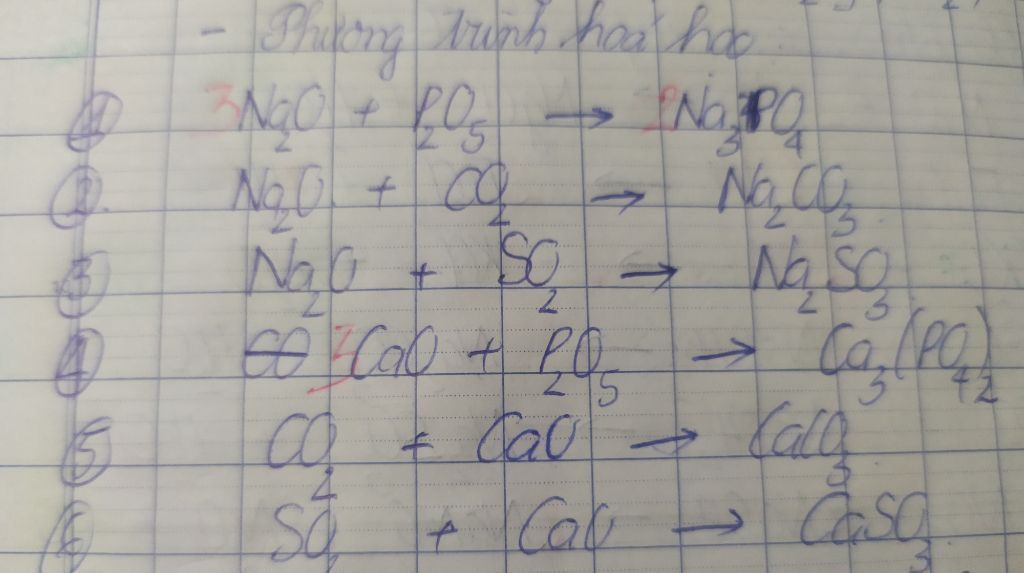 - Phương trình hoá học
① 3Na₂O + P₂O₅ → 2Na₃PO₄
② Na₂O + CO₂ → Na₂CO₃
③ Na₂O + SO₂ → Na₂SO₃
④ 3CaO + P₂O₅ → Ca₃(PO₄)₂
⑤ CO₂ + CaO → CaCO₃
⑥ SO₂ + CaO → CaSO₃